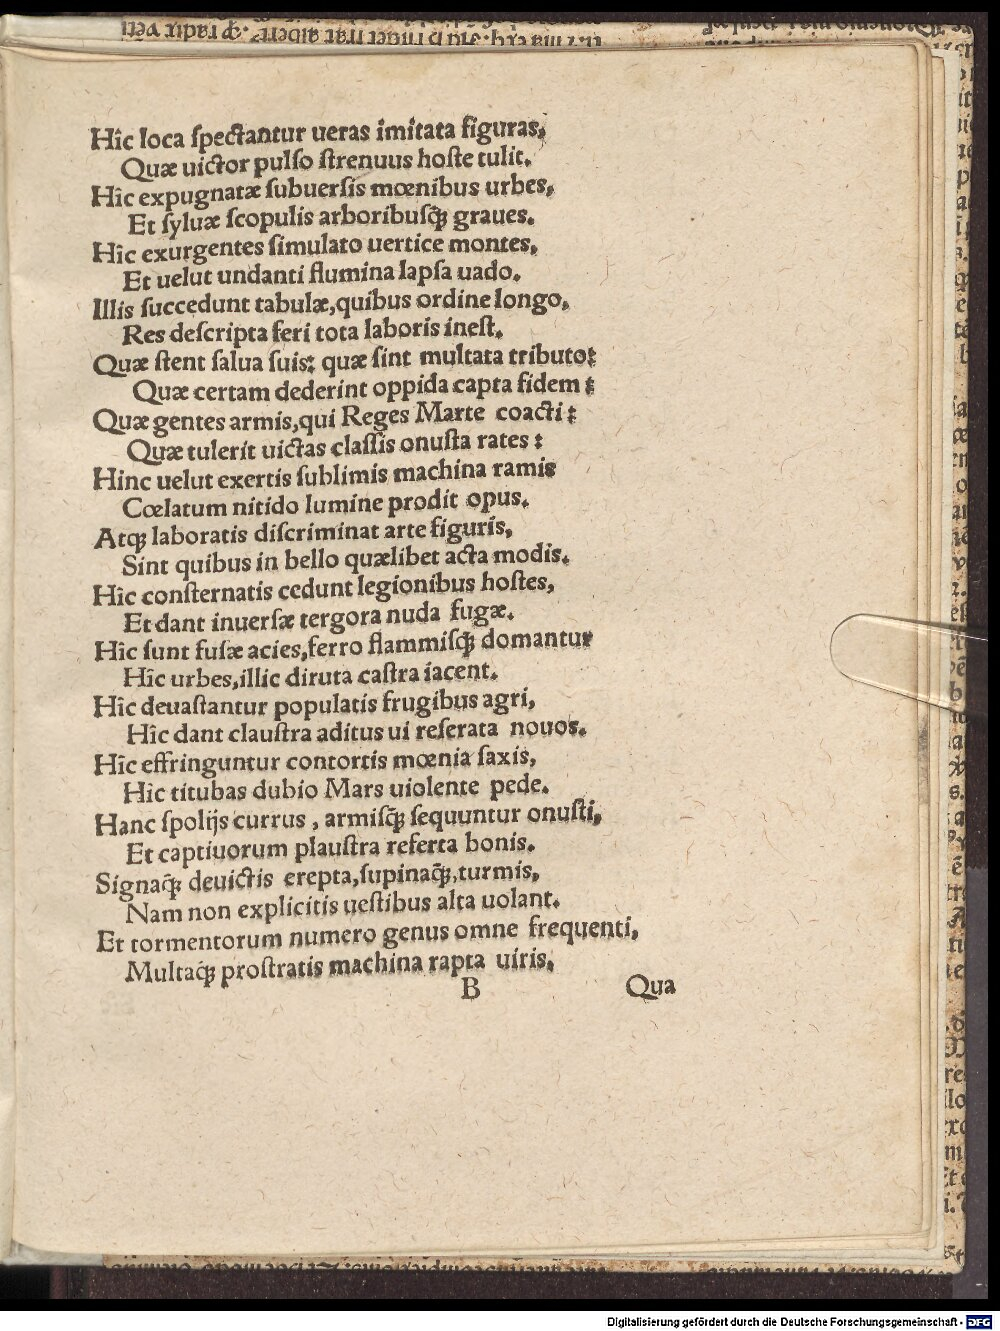 Hîc loca ſpectantur ueras imitata figuras,
Quæ uictor pulſo ſtrenuus hoſte tulit.
Hîc expugnatæ ſubuerſis mœnibus urbes,
Et ſyluæ ſcopulis arboribuſq̃; graues.
Hîc exurgentes ſimulato uertice montes,
Et uelut undanti flumina lapſa uado.
Illis ſuccedunt tabulæ,quibus ordine longo,
Res deſcripta feri tota laboris ineſt.
Quæ ſtent ſalua ſuis: quæ ſint multata tributo:
Quæ certam dederint oppida capta fidem:
Quæ gentes armis,qui Reges Marte coacti:
Quæ tulerit uictas claſſis onuſta rates:
Hinc uelut exertis ſublimis machina ramis
Cœlatum nitido lumine prodit opus.
Atq; laboratis diſcriminat arte figuris,
Sint quibus in bello quælibet acta modis.
Hîc conſternatis cedunt legionibus hoſtes,
Et dant inuerſæ tergora nuda fugæ.
Hîc ſunt fuſæ acies,ferro flammiſq̃; domantur
Hîc urbes,illic diruta caſtra iacent.
Hîc deuaſtantur populatis frugibus agri,
Hîc dant clauſtra aditus ui reſerata nouos.
Hîc effringuntur contortis mœnia ſaxis,
Hic titubas dubio Mars uiolente pede.
Hanc ſpolijs currus, armiſq̃; ſequuntur onuſti,
Et captiuorum plauſtra referta bonis.
Signaq̃; deuictis erepta,ſupinaq̃;,turmis,
Nam non explicitis ueſtibus alta uolant.
Et tormentorum numero genus omne frequenti,
Multaq̃; proſtratis machina rapta uiris,
B Qua
Digitalisierung gefördert durch die Deutsche Forschungsgemeinschaft - DFG